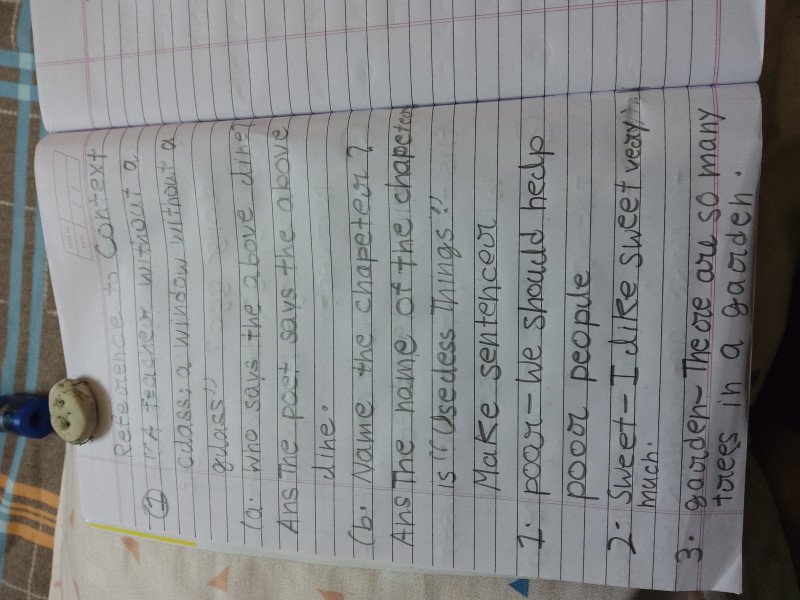 Reference to Context
(1) "A teacher without a
class; a window without a
glass"
(a. who says the above line?
Ans The poet says the above
line.
(b. Name the chapeter?
Ans The name of the chapeter
is "Useless Things".
Make sentenceor
1. poor - We should help
poor people
2. Sweet - I like sweet very
much.
3. garden - There are so many
trees in a garden.